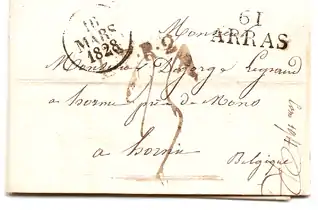 16
MARS
1828
61
ARRAS
R.2
Monsieur
Monsieur Degorge Legrand
a hornu près de Mons
a hornu
Belgique